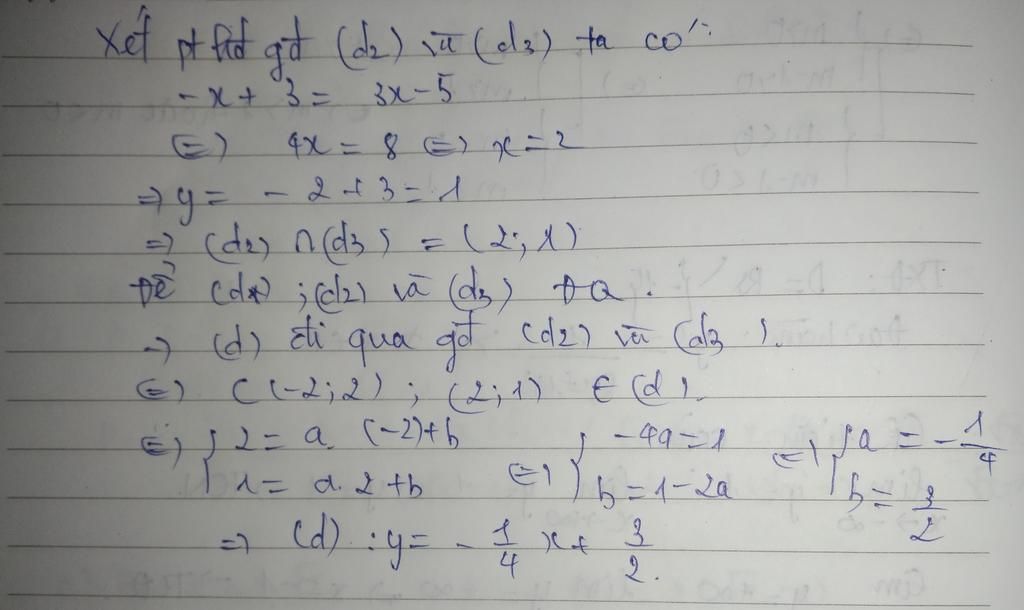 Xét pt hđ gđ (d2) và (d3) ta có:
-x + 3 = 3x - 5
<=> 4x = 8 <=> x = 2
=> y = - 2 + 3 = 1
=> (d2) ∩ (d3) = (2; 1)
Để (d); (d2) và (d3)
=> (d) đi qua gđ (d2) và (d3).
<=> C(-2; 2); (2; 1) ∈ (d).
<=> { 2 = a. (-2) + b <=> { -4a = 1 <=> { a = -1/4
1 = a. 2 + b b = 1 - 2a b = 3/2
=> (d) : y = - 1/4 x + 3/2.